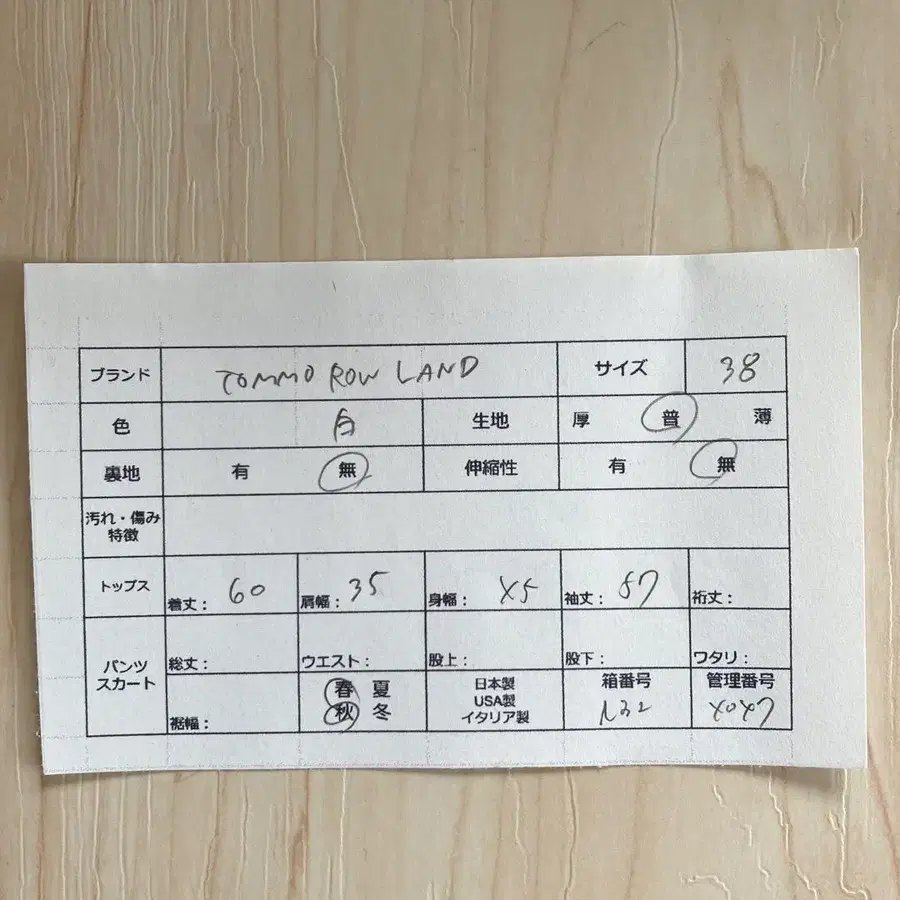 ブランド TOMMOROW LAND サイズ 38
色 白 生地 厚 普 薄
裏地 有 無 伸縮性 有 無
汚れ・傷み
特徴
トップス 着丈: 60 肩幅: 35 身幅: 45 袖丈: 57 裄丈:
パンツ
スカート
総丈: ウエスト: 股上: 股下: ワタリ:
裾幅:
春 夏
秋 冬
日本製
USA製
イタリア製
箱番号
管理番号
4047